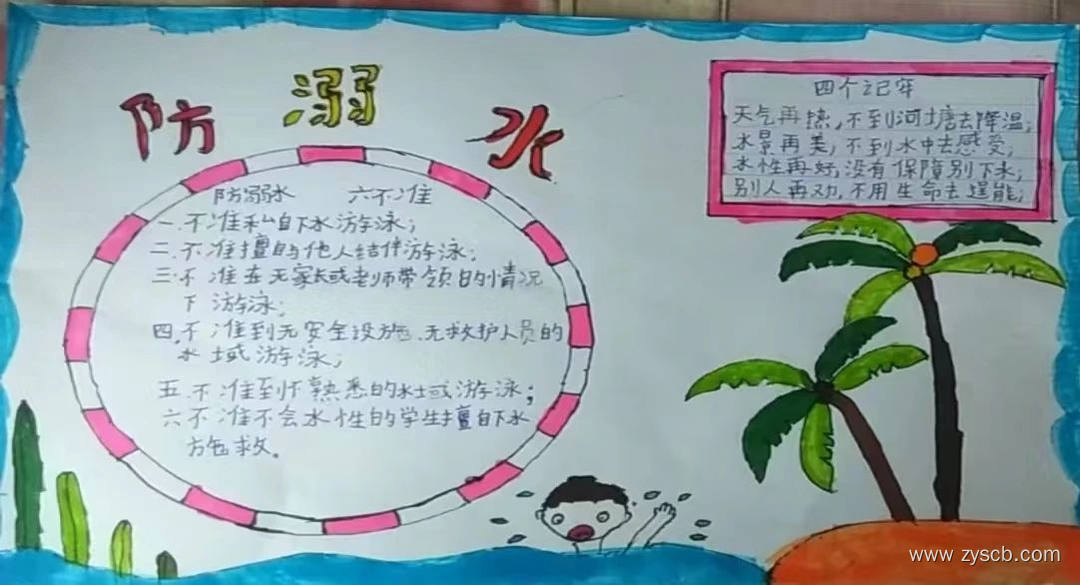 防溺水
四个记牢
天气再热，不到河塘去降温；
水景再美，不到水中去感受；
水性再好，没有保障别下水；
别人再劝，不用生命去逞能；
防溺水 六不准
一.不准私自下水游泳；
二.不准擅自与他人结伴游泳；
三.不准在无家长或老师带领的情况
下游泳；
四.不准到无安全设施、无救护人员的
水域游泳；
五.不准到不熟悉的水域游泳；
六不准不会水性的学生擅自下水
施救。
www.zyscb.com